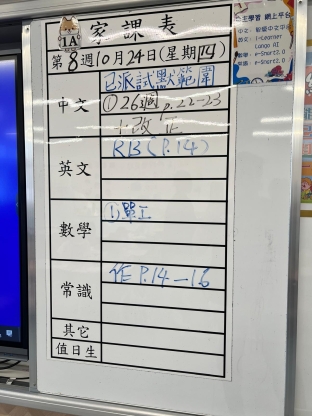 家課表
1A
第8週10月24日(星期四)
已派試默範圍
中文
①26週 P.22-23
+改正
英文
RB(P.14)
數學
①單工
常識
作 P.14-16
其它
值日生
主學習 網上平台
i-Learner